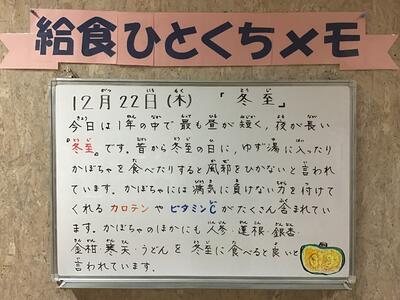 給食ひとくちメモ
12月22日(木) 「冬至」
今日は1年の中で最も昼が短く、夜が長い
『冬至』です。昔から冬至の日に、ゆず湯に入ったり
かぼちゃを食べたりすると風邪をひかないと言われ
ています。かぼちゃには病気に負けない力を付けて
くれるカロテンやビタミンCがたくさん含まれてい
ます。かぼちゃのほかにも人参・蓮根・銀杏・
金柑・寒天・うどんを冬至に食べると良いと
言われています。